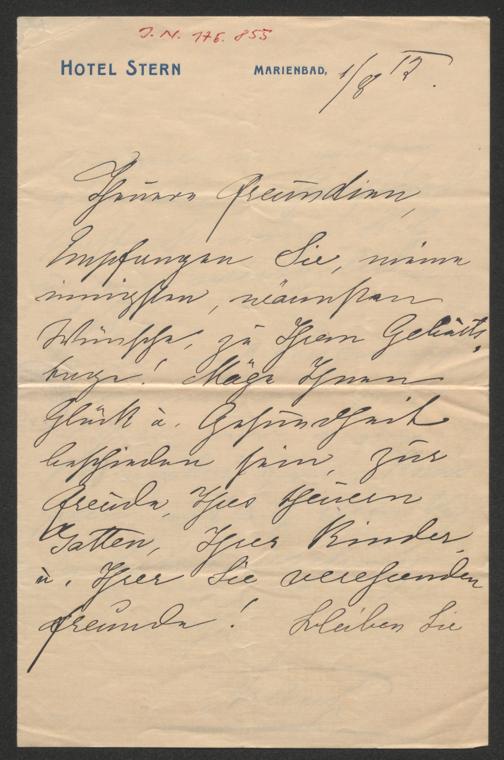 J. N. 176.855
HOTEL STERN MARIENBAD, 1/8 12.
Theuere Freundien,
Empfangen Sie, meine
innigsten, wärmsten
Wünsche, zu Ihrem Geburts-
tage! Möge Ihnen
Glück u. Gesundheit
beschieden sein, zur
Freude, Ihres theuern
Gatten, Ihrer Kinder,
u. Ihrer Sie verehrenden
Freunde! Bleiben Sie